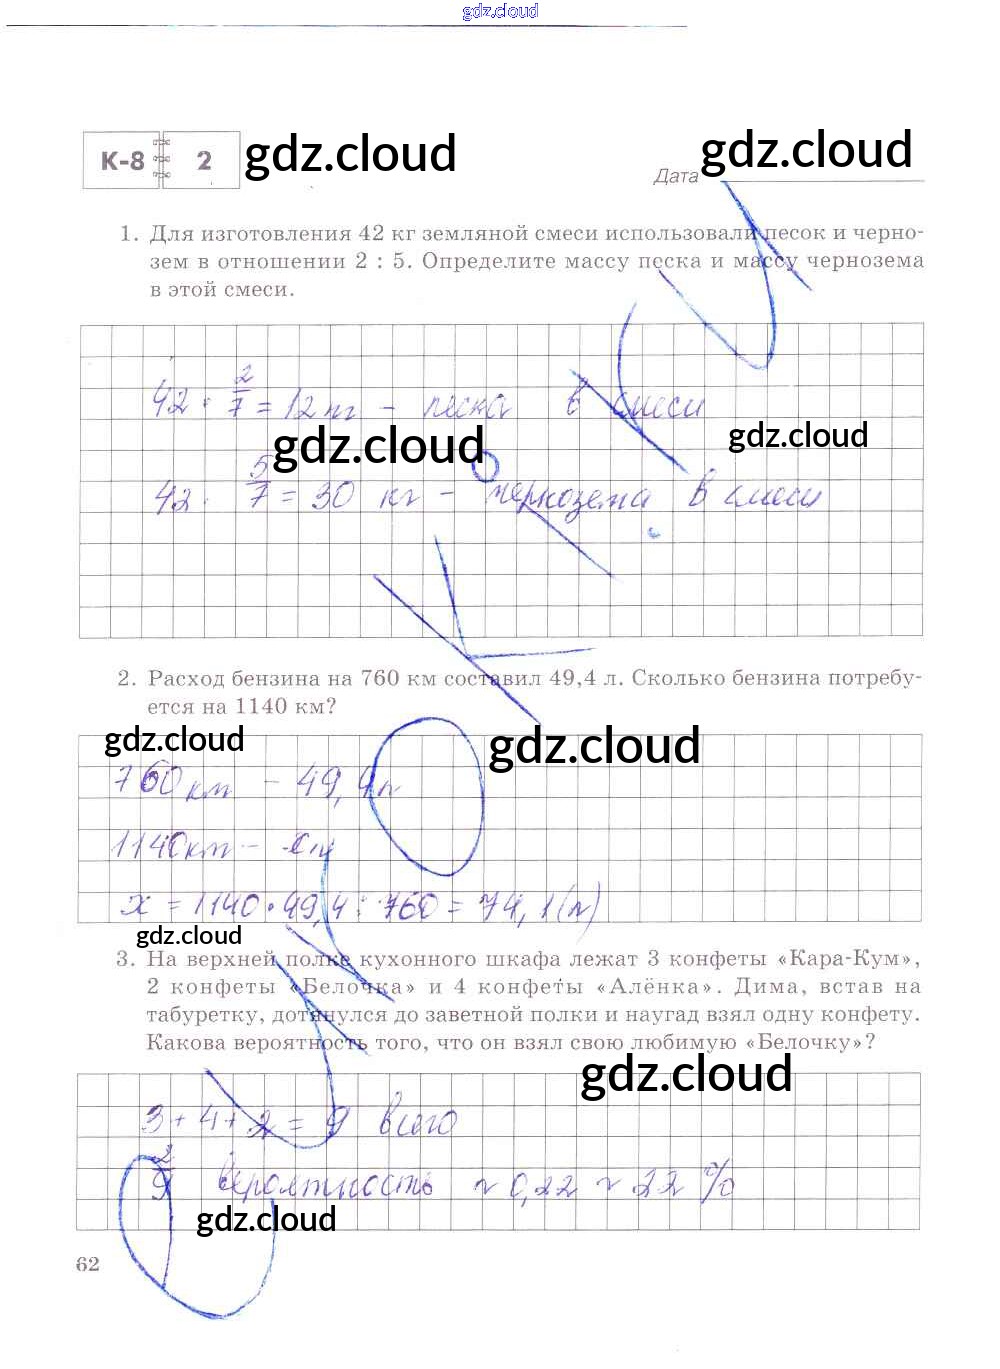 gdz.cloud
К-8 2 gdz.cloud
Дата gdz.cloud
1. Для изготовления 42 кг земляной смеси использовали песок и черно-
зем в отношении 2 : 5. Определите массу песка и массу чернозема
в этой смеси.
42 · 2/7 = 12 кг – песка в смеси
gdz.cloud gdz.cloud
42 · 5/7 = 30 кг – чернозема в смеси
2. Расход бензина на 760 км составил 49,4 л. Сколько бензина потребу-
ется на 1140 км?
gdz.cloud gdz.cloud
760 км – 49,4 л
1140 км –
x = 1140 · 49,4 : 760 = 74,1 (л)
gdz.cloud
3. На верхней полке кухонного шкафа лежат 3 конфеты «Кара-Кум»,
2 конфеты «Белочка» и 4 конфеты «Алёнка». Дима, встав на
табуретку, дотянулся до заветной полки и наугад взял одну конфету.
Какова вероятность того, что он взял свою любимую «Белочку»?
gdz.cloud
3 + 4 + 2 = 9 всего
2/9 вероятность ≈ 0,22 ≈ 22 %
gdz.cloud
62